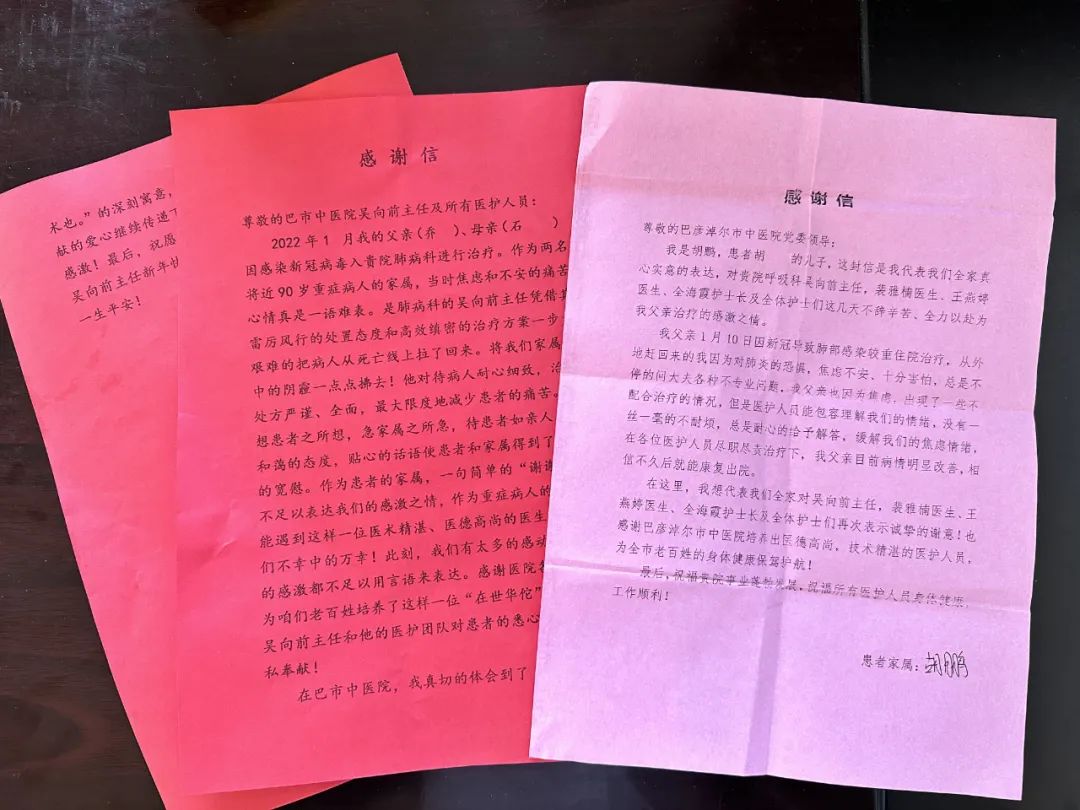 术也。”的深刻寓意，
献的爱心继续传递下
感激！最后，祝愿
吴向前主任新年快
一生平安！
感谢信
尊敬的巴市中医院吴向前主任及所有医护人员：
2022年1 月我的父亲（乔 ）、母亲（石 ）
因感染新冠病毒入贵院肺病科进行治疗。作为两名
将近90岁重症病人的家属，当时焦虑和不安的痛苦
心情真是一语难表。是肺病科的吴向前主任凭借其
雷厉风行的处置态度和高效缜密的治疗方案一步
艰难的把病人从死亡线上拉了回来。将我们家属
中的阴霾一点点拂去！他对待病人耐心细致，治
处方严谨、全面，最大限度地减少患者的痛苦。
想患者之所想，急家属之所急，待患者如亲人
和蔼的态度，贴心的话语使患者和家属得到了
的宽慰。作为患者的家属，一句简单的“谢谢
不足以表达我们的感激之情，作为重症病人的
能遇到这样一位医术精湛、医德高尚的医生
们不幸中的万幸！此刻，我们有太多的感动
的感激都不足以用言语来表达。感谢医院
为咱们老百姓培养了这样一位“在世华佗”
吴向前主任和他的医护团队对患者的悉心
私奉献！
在巴市中医院，我真切的体会到了
感谢信
尊敬的巴彦淖尔市中医院党委领导：
我是胡鹏，患者胡 的儿子，这封信是我代表我们全家真
心实意的表达，对贵院呼吸科吴向前主任，裴雅楠医生、王燕婷
医生、全海霞护士长及全体护士们这几天不辞辛苦、全力以赴为
我父亲治疗的感激之情。
我父亲1月10日因新冠导致肺部感染较重住院治疗，从外
地赶回来的我因为对肺炎的恐惧，焦虑不安、十分害怕，总是不
停的问大夫各种不专业问题，我父亲也因为焦虑，出现了一些不
配合治疗的情况，但是医护人员能包容理解我们的情绪，没有一
丝一毫的不耐烦，总是耐心的给予解答，缓解我们的焦虑情绪，
在各位医护人员尽职尽责治疗下，我父亲目前病情明显改善，相
信不久后就能康复出院。
在这里，我想代表我们全家对吴向前主任，裴雅楠医生、王
燕婷医生、全海霞护士长及全体护士们再次表示诚挚的谢意！也
感谢巴彦淖尔市中医院培养出医德高尚，技术精湛的医护人员，
为全市老百姓的身体健康保驾护航！
最后，祝福贵院事业蓬勃发展，祝福所有医护人员身体健康，
工作顺利！
患者家属：胡鹏